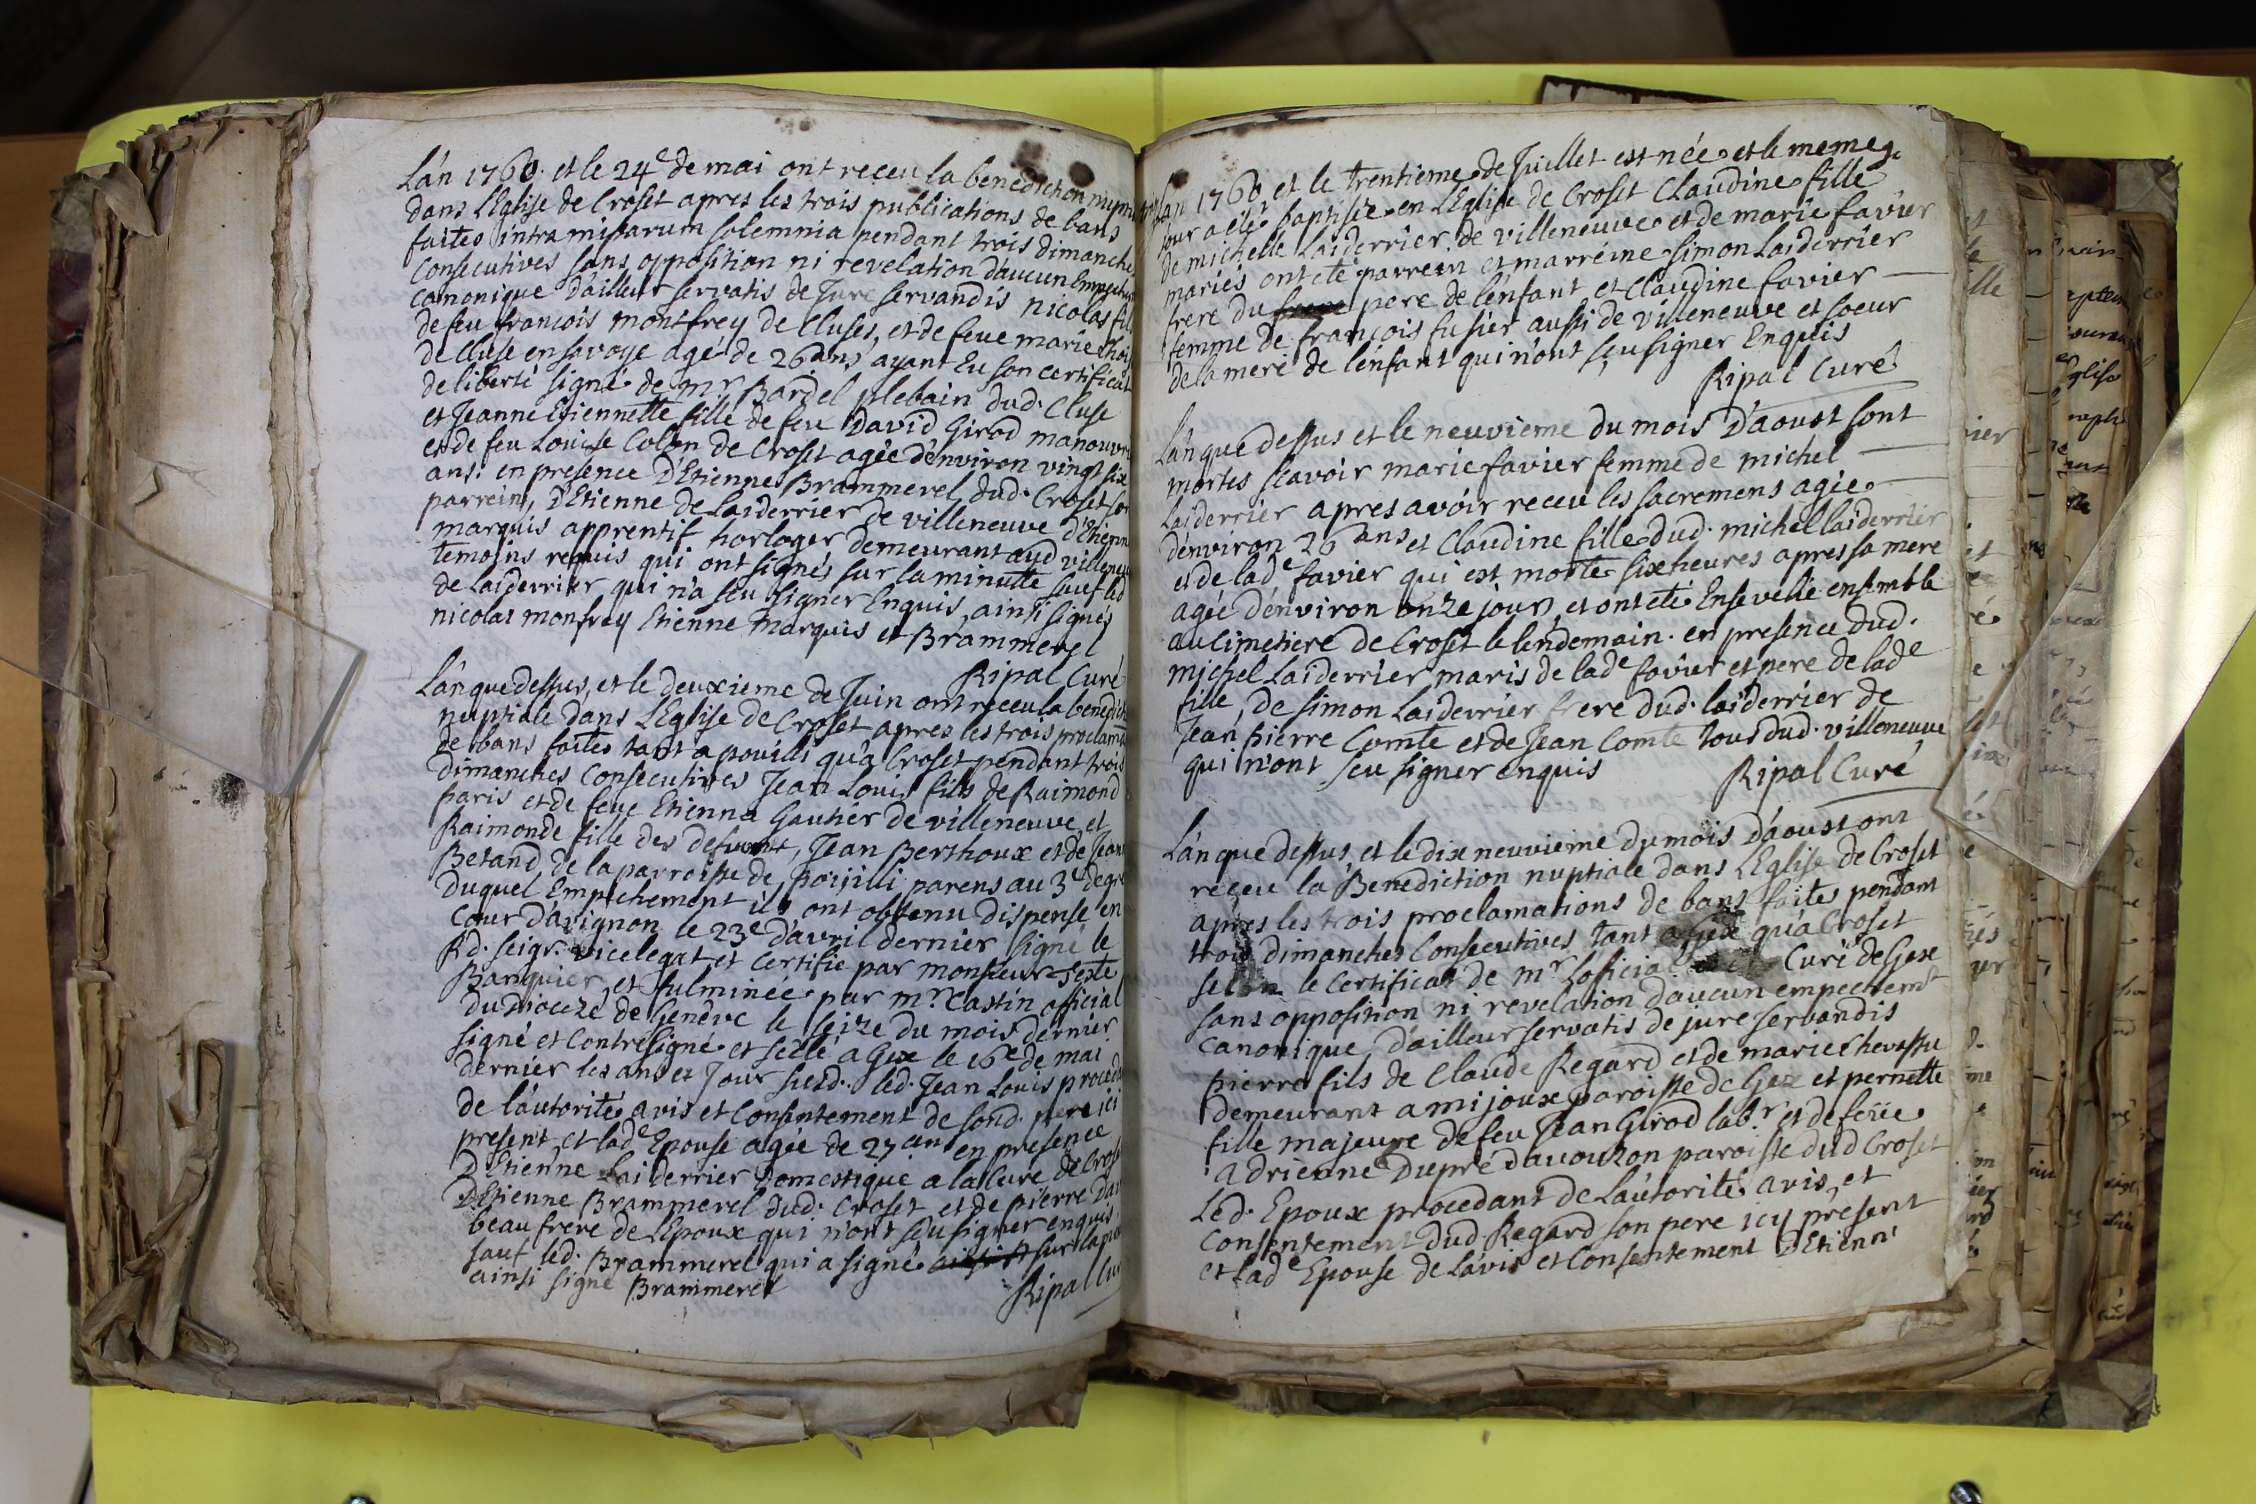 L'an 1760. et le 24e de mai ont receu la benediction nuptiale
dans L'Eglise de Croset apres les trois publications de bans
faites intra missarum solemnia pendant trois dimanches
Consecutives sans opposition ni revelation d'aucun Empechem
canonique d'ailleur servatis de Jure servandis nicolas fils
de feu francois monfrey de Cluses, et de feue marie
de Cluse en savoye agé de 26 ans ayant Eu son certificat
de liberté signé de mr Bardel plebain dud. Cluse
et Jeanne Etiennette fille de feu David Girod manouvr
et de feu Louise Colon de Croset agée d'environ vingt six
ans. en presence D'Etienne Brammerel dud. Croset son
parrein, D'Etienne de Laiderrier de villeneuve d'Etienne
marquis apprentif horloger demeurant aud villeneuve
temoins requis qui ont signés sur la minutte sauf led
de Laiderrier qui n'a seu signer Enquis, ainsi signés
nicolas monfrey Etienne marquis et Brammerel
Ripal Curé
L'an que dessus, et le deuxieme de Juin ont receu la benedict
nuptiale dans L'Eglise de Croset apres les trois proclama
de bans faites tant a pouilli qu'a Croset pendant trois
dimanches Consecutives Jean Louis fils de Raimond
paris et de feue Etienna Gautier de villeneuve et
Raimonde fille des defunts, Jean Berthoux et de Jean
Betand de la parroisse de poüilli parens au 3e degré
duquel Empechement ils ont obtenu dispense en
Cour d'avignon le 23e d'avril dernier signé le
Rd. seigr. vicelegat et certifie par monsieur Sexte
Banquier, et fulminée par mr. Castin official
du Dioceze de Genève le seize du mois dernier
signé et Contresigné et scellé a Gex le 16e de mai
dernier les ans et Jour susd. led. Jean Louis proced
de l'autorité avis et Consentement de sond. pere ici
present, et lade Epouse agée de 27 ans en presence
D'Etienne Laiderrier Domestique a la Cure de Croset
D'Etienne Brammerel dud. Croset et de pierre
beaufrere de L'Epoux qui n'ont seu signer enquis
sauf led. Brammerel qui a signé sur la
ainsi signé Brammerel
Ripal Cu
L'an 1760 et le trentieme de Juillet est née et le meme
Jour a été baptisée en L'Eglise de Croset Claudine fille
de michelle Laiderrier de villeneuve et de marie favier
mariés ont eté parrein et marreine simon Laiderrier
frere du pere de l'enfant et Claudine favier
femme de françois fusier aussi de villeneuve et soeur
de la mere de l'enfant qui n'ont sçeu signer Enquis
Ripal Curé
L'an que dessus et le neuvieme du mois D'aoust sont
mortes scavoir marie favier femme de michel
Laiderrier apres avoir receu les sacremens agée
d'environ 26 ans et Claudine fille dud. michel laiderrier
et de lade favier qui est morte six heures apres sa mere
agée d'environ onze jours, et ont eté Ensevelie ensemble
au Cimetiere de Croset le lendemain. en presence dud.
michel Laiderrier maris de lade favier et pere de lade
fille, de simon Laiderrier frere dud. laiderrier de
Jean, pierre Comte et de Jean Comte tous dud. villeneuve
qui n'ont seu signer enquis
Ripal Curé
L'an que dessus, et le dix neuvieme du mois D'aoust ont
reçeu la Benediction nuptiale dans L'Eglise de Croset
apres les trois proclamations de bans faites pendant
trois dimanches Consecutives, tant a Gex qu'a Croset
selon le Certificat de mr L'oficial Curé de Gex
sans opposition ni revelation d'aucun empechemt
canonique, d'ailleur servatis de jure servandis
pierre fils de Claude Regard et de marie Chevassu
demeurant a mijoux paroisse de Gex et pernette
fille majeure de feu Jean Girod labr. et de feüe
adrienne Dupré d'avouzon paroisse dud Croset
Led. Epoux procedant de L'autorité, avis, et
Consentement dud. Regard son pere icy present
et lade Epouse de L'avis et Consentement D'Etienn